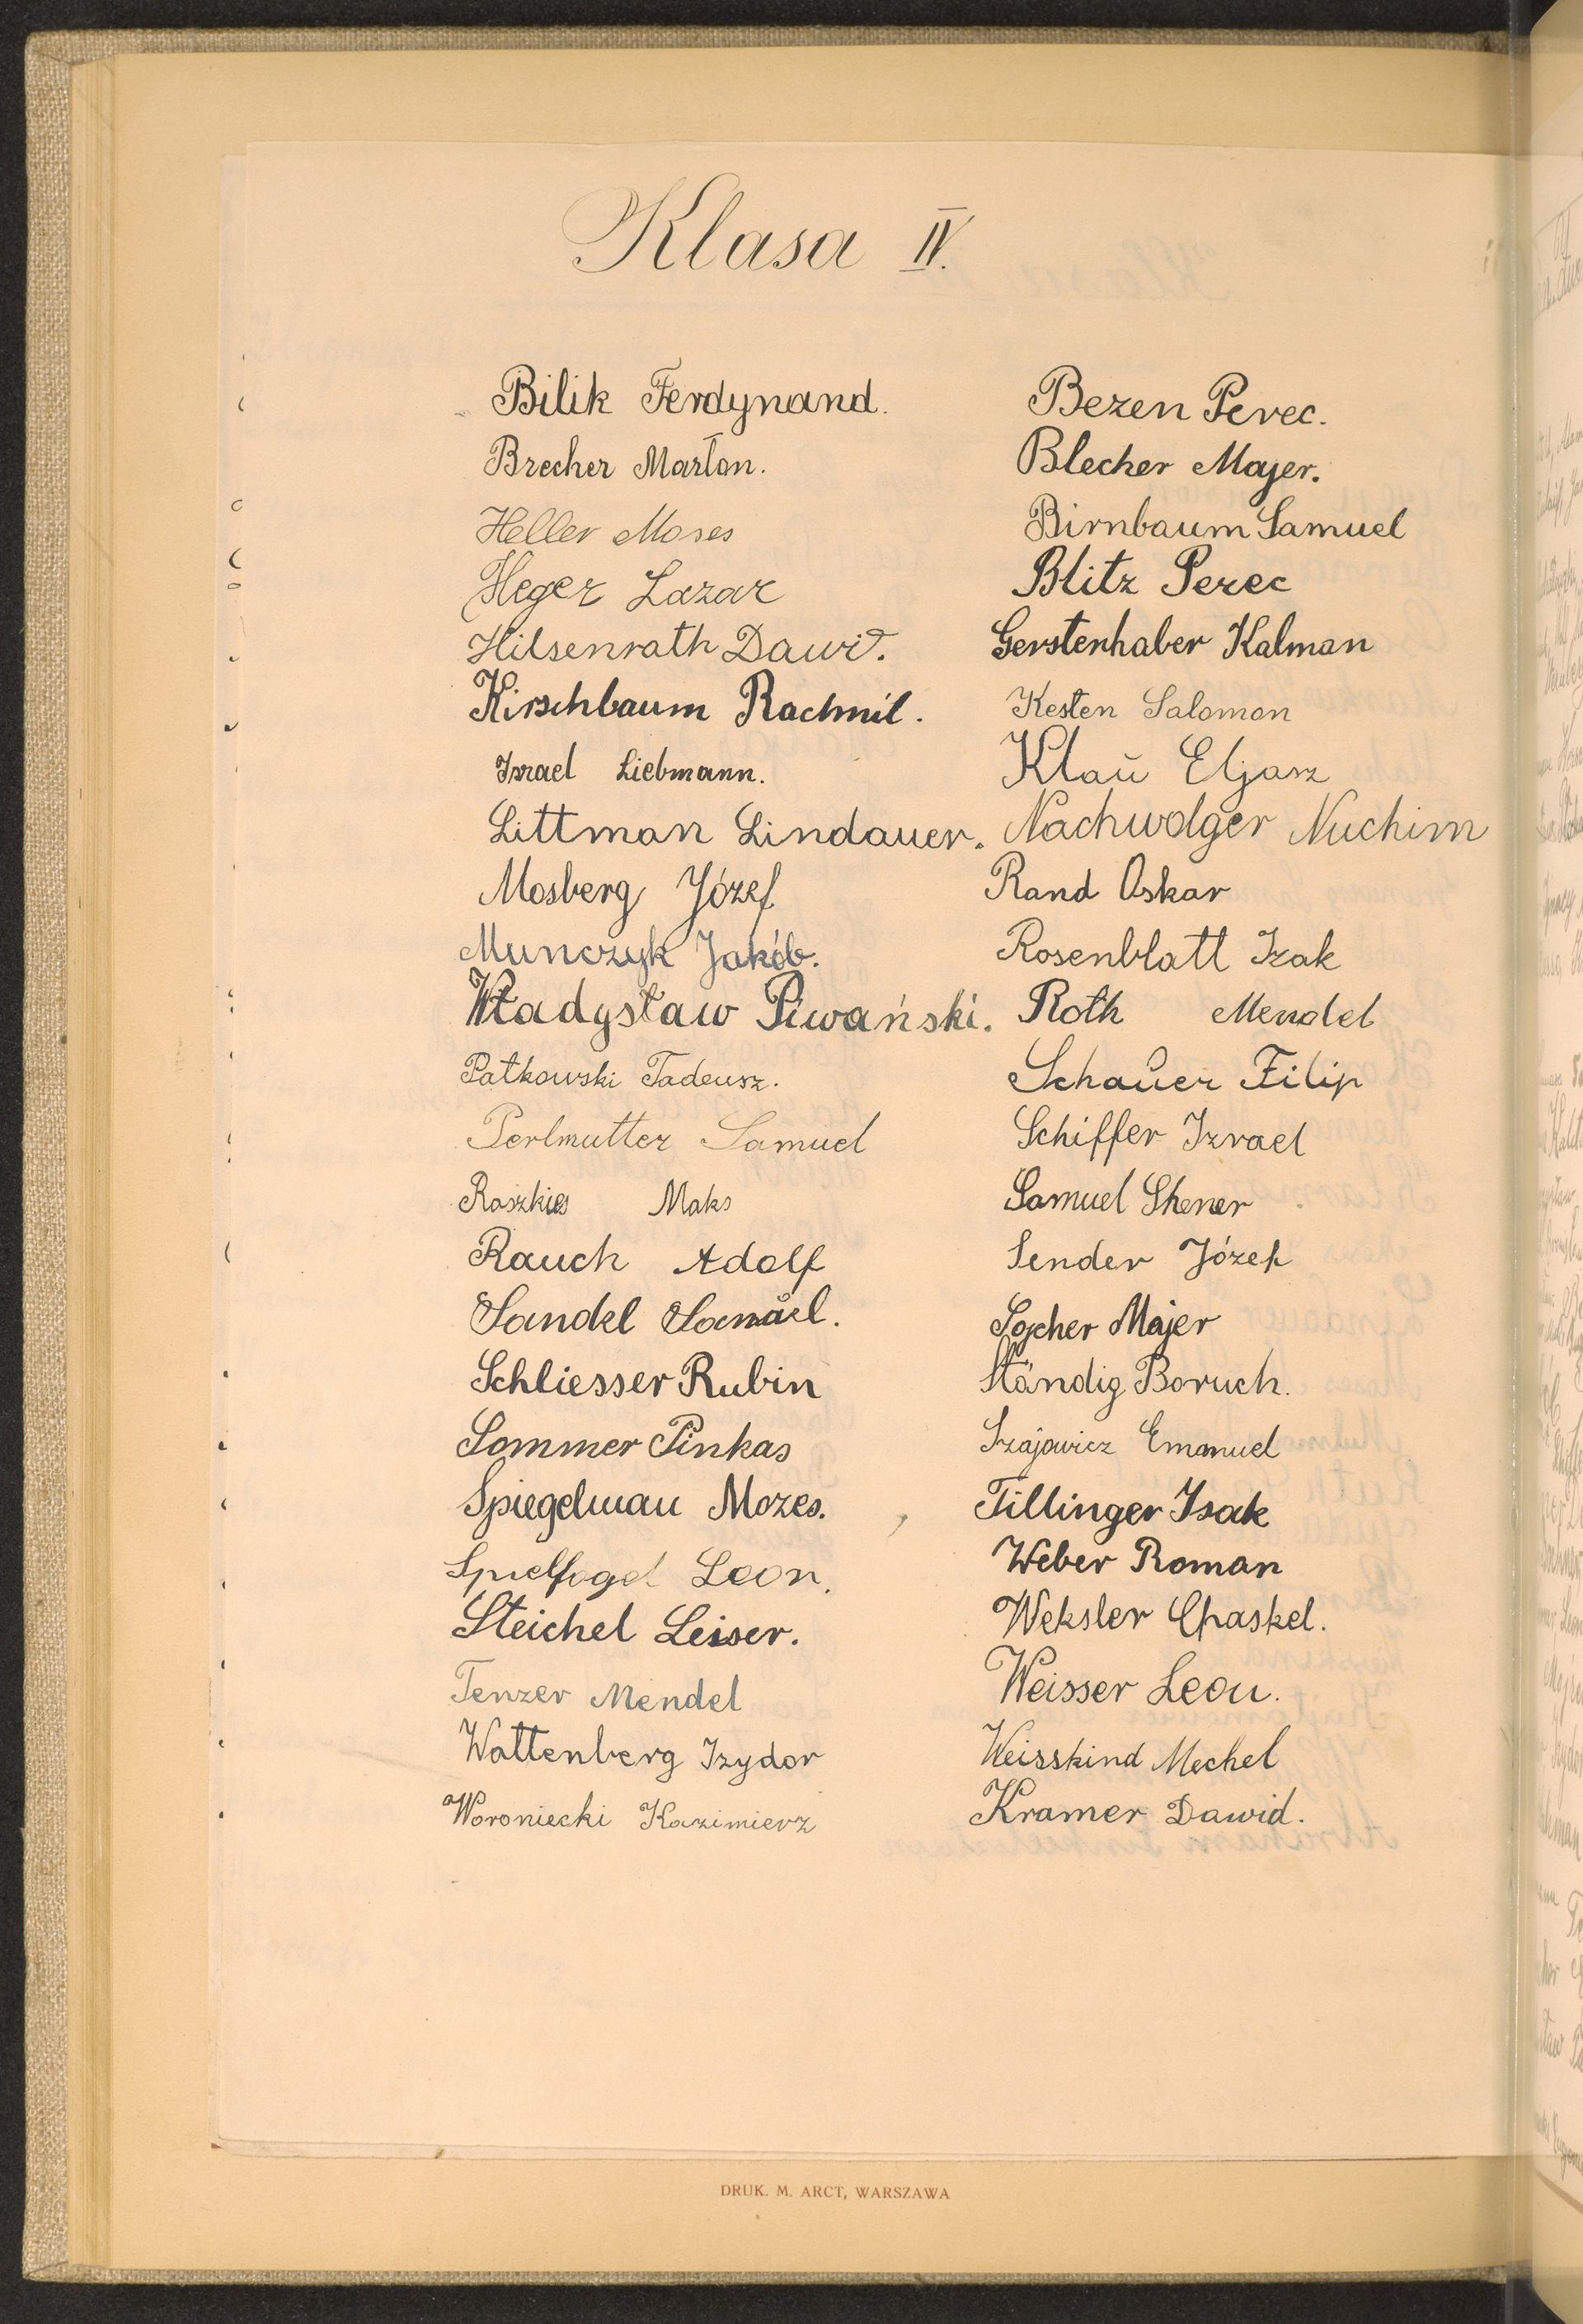 Klasa IV.
Bilik Ferdynand.
Brecher Marjan.
Heller Moses
Heger Lazar
Hilsenrath Dawid.
Kirschbaum Rachmil.
Israel Liebmann.
Littman Lindauer.
Mosberg Józef
Munczyk Jakób.
Władysław Piwański.
Patkowski Tadeusz.
Perlmutter Samuel
Raszkies Maks
Rauch Adolf
Sandel Samuel.
Schliesser Rubin
Sommer Pinkas
Spiegelman Mozes.
Spielfogel Leon.
Steichel Leiser.
Tenzer Mendel
Wattenberg Izydor
Woroniecki Kazimierz
Bezen Perec.
Blecher Majer.
Birnbaum Samuel
Blitz Perec
Gerstenhaber Kalman
Kesten Salomon
Klaŭ Eljasz
Nachwolger Nuchim
Rand Oskar
Rosenblatt Izak
Roth Mendel
Schaŭer Filip
Schiffer Izrael
Samuel Shener
Sender Józef
Socher Majer
Ständig Boruch.
Szajowicz Emanuel
Tillinger Isak
Weber Roman
Weksler Chaskel.
Weisser Leon.
Weisskind Mechel
Kramer Dawid.
DRUK. M. ARCT, WARSZAWA